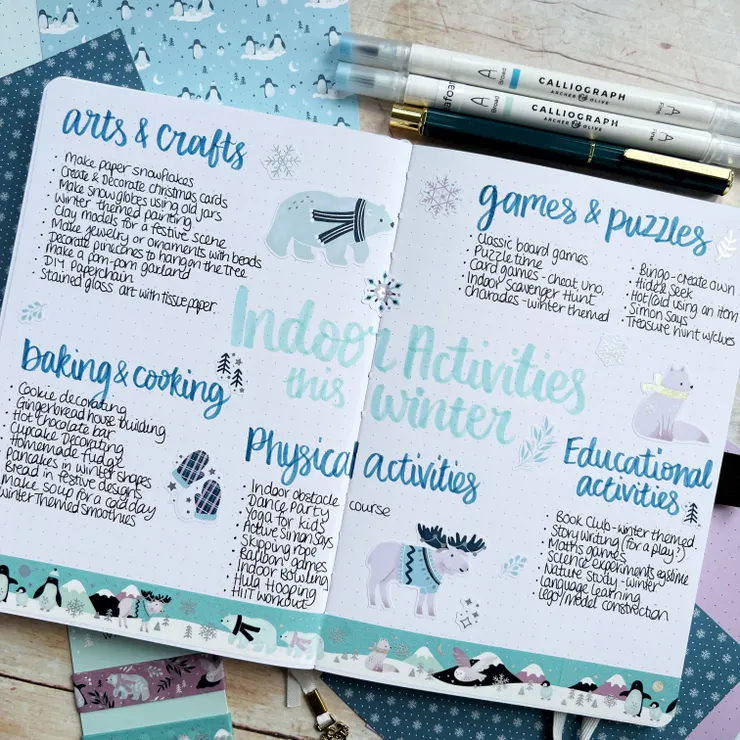 arts & crafts
• Make paper snowflakes
• Create & Decorate christmas cards
• Make snow globes using old jars
• Winter themed painting
• Clay models for a festive scene
• Make jewelry or ornaments with beads
• Decorate pinecones to hang on the tree
• Make a pom-pom garland
• D.I.Y Paperchain
• Stained glass art with tissue paper
baking & cooking
• Cookie decorating
• Gingerbread house building
• Hot chocolate bar
• Cupcake Decorating
• Homemade fudge
• Pancakes in winter shapes
• Bread in festive designs
• Make soup for a cold day
• Winter themed smoothies
Indoor Activities
this winter
Physical activities
• Indoor obstacle course
• Dance Party
• Yoga for kids
• Active Simon Says
• Skipping rope
• Balloon games
• Indoor Bowling
• Hula Hooping
• HIIT workout
games & puzzles
• Classic board games
• Puzzle time
• Card games - cheat, uno,
• Indoor Scavenger Hunt
• charades - winter themed
• Bingo - create own
• Hide & Seek
• Hot/Cold using an item
• Simon Says
• Treasure hunt w/clues
Educational
activities
• Book Club - winter themed
• Story writing (for a play?)
• Maths games
• Science experiments
• Nature Study - winter
• Language learning
• Lego/model construction
A Broad CALLIOGRAPH
ARCHER & OLIVE
A Broad CALLIOGRAPH
ARCHER & OLIVE
Fine